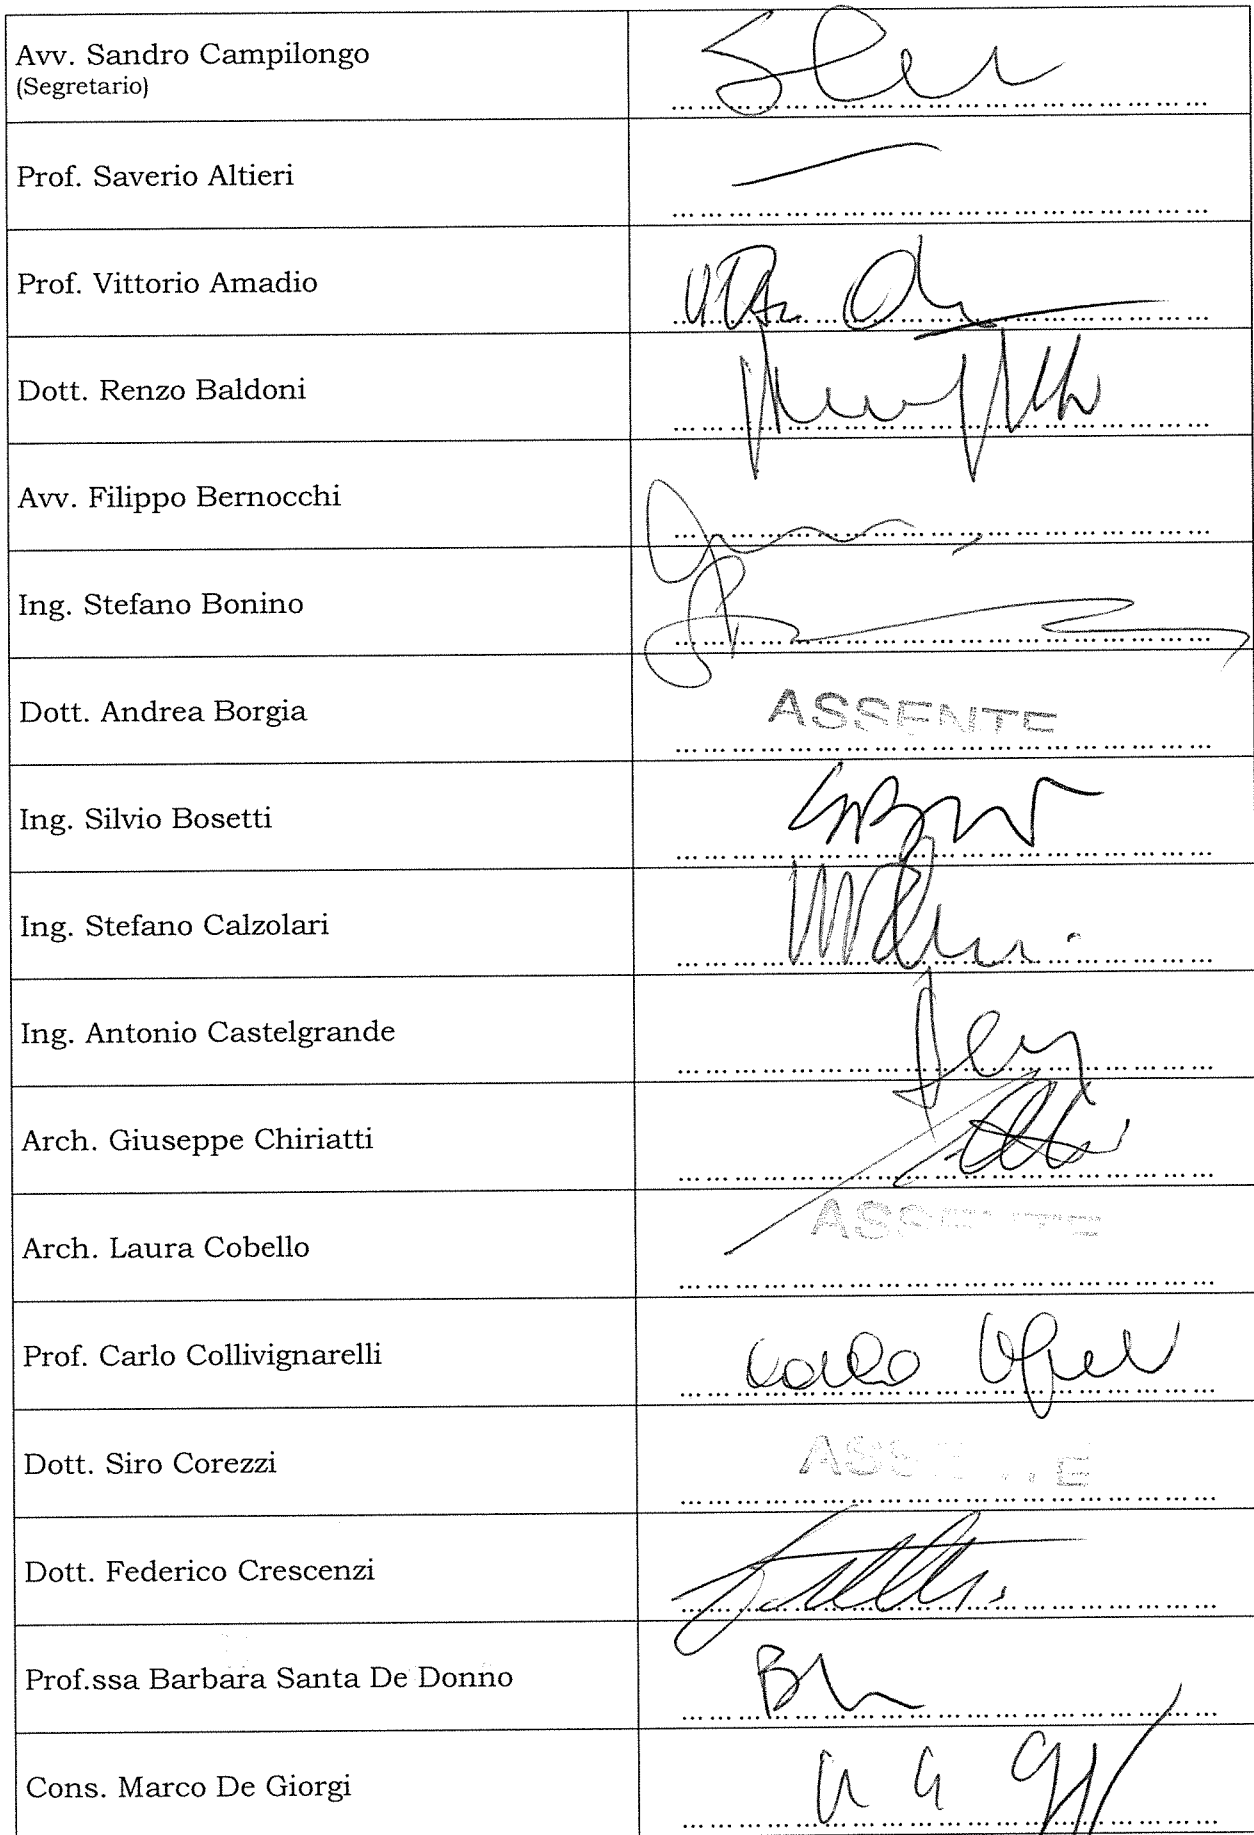 Avv. Sandro Campilongo
(Segretario)
Prof. Saverio Altieri
Prof. Vittorio Amadio
Dott. Renzo Baldoni
Avv. Filippo Bernocchi
Ing. Stefano Bonino
Dott. Andrea Borgia
ASSENTE
Ing. Silvio Bosetti
Ing. Stefano Calzolari
Ing. Antonio Castelgrande
Arch. Giuseppe Chiriatti
Arch. Laura Cobello
ASSENTE
Prof. Carlo Collivignarelli
Dott. Siro Corezzi
ASSENTE
Dott. Federico Crescenzi
Prof.ssa Barbara Santa De Donno
Cons. Marco De Giorgi